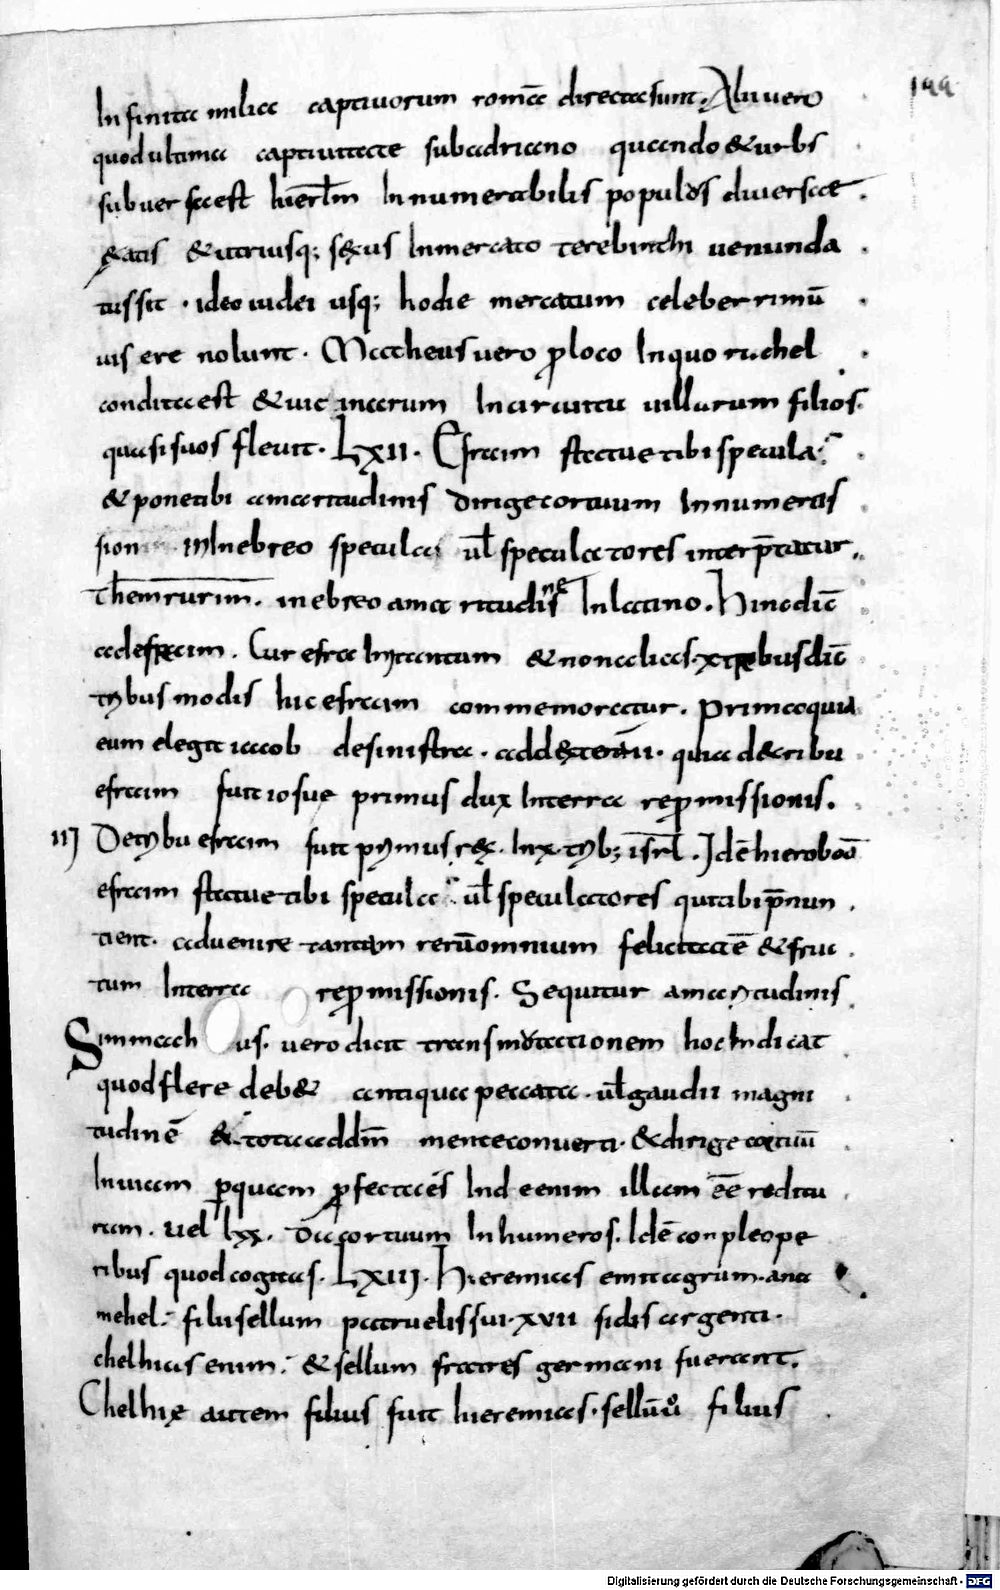 199
Infinita milia captivorum romā directa sunt. Alii vero
quod ultima captivitate sub adriano quando & urbs
subversa est hierlm Innumerabilis populus diversae
&atis & utriusq; sexus In mercato terebinthi venunda
tus sit · ideo iudei usq; hodie mercatum celeberrimū
visere nolunt · Matheus vero ꝓ loco In quo rachel
condita est & vicinarum In circuitu villarum filios
quasi suos flevit · LXII · Efraim statue tibi specula
& pone tibi amaritudinis dirige cor tuum In umeros
sion In ebreo specula ul speculatores interp̄tatur
themrurim. in ebreo amaritudinē In latino. Hinc dic̄
ad efraim. Cur efraim tantum & non alias x tribus dic̄
tribus modis hic efraim commemoratur. Prima quia
eum elegit iacob de sinistra · ad dexterā · ii · quia de tribu
efraim fuit iosue primus dux In terra repromissionis.
iij De tribu efraim fuit primus rex In x trib; isrl. Idē hieroboā
efraim statue tibi specula ul speculatores qui tibi p̄nun
tient. advenire tantam rerū omnium felicitatē & fruc
tum In terra repromissionis. Sequitur amaritudinis
Simmachus. vero dicit transmutationem hoc Indicat
quod flere deb& antiqua peccata · ul gaudii magni
tudinē & tota ad dm̄ mente converti · & dirige cor tuū
In viam per quam profecta es Inde enim illam eē reditu
ram. vel lxx. da cor tuum In humeros. Idē conple ope
ribus quod cogitas. LXIII. Hieremias emit agrum. ana
mehel filii sellum patruelis sui · XVII siclis argenti ·
chelhias enim & sellum fratres germani fuerant.
Chelhię autem filius fuit hieremias · sellū vo filius
Digitalisierung gefördert durch die Deutsche Forschungsgemeinschaft - DFG